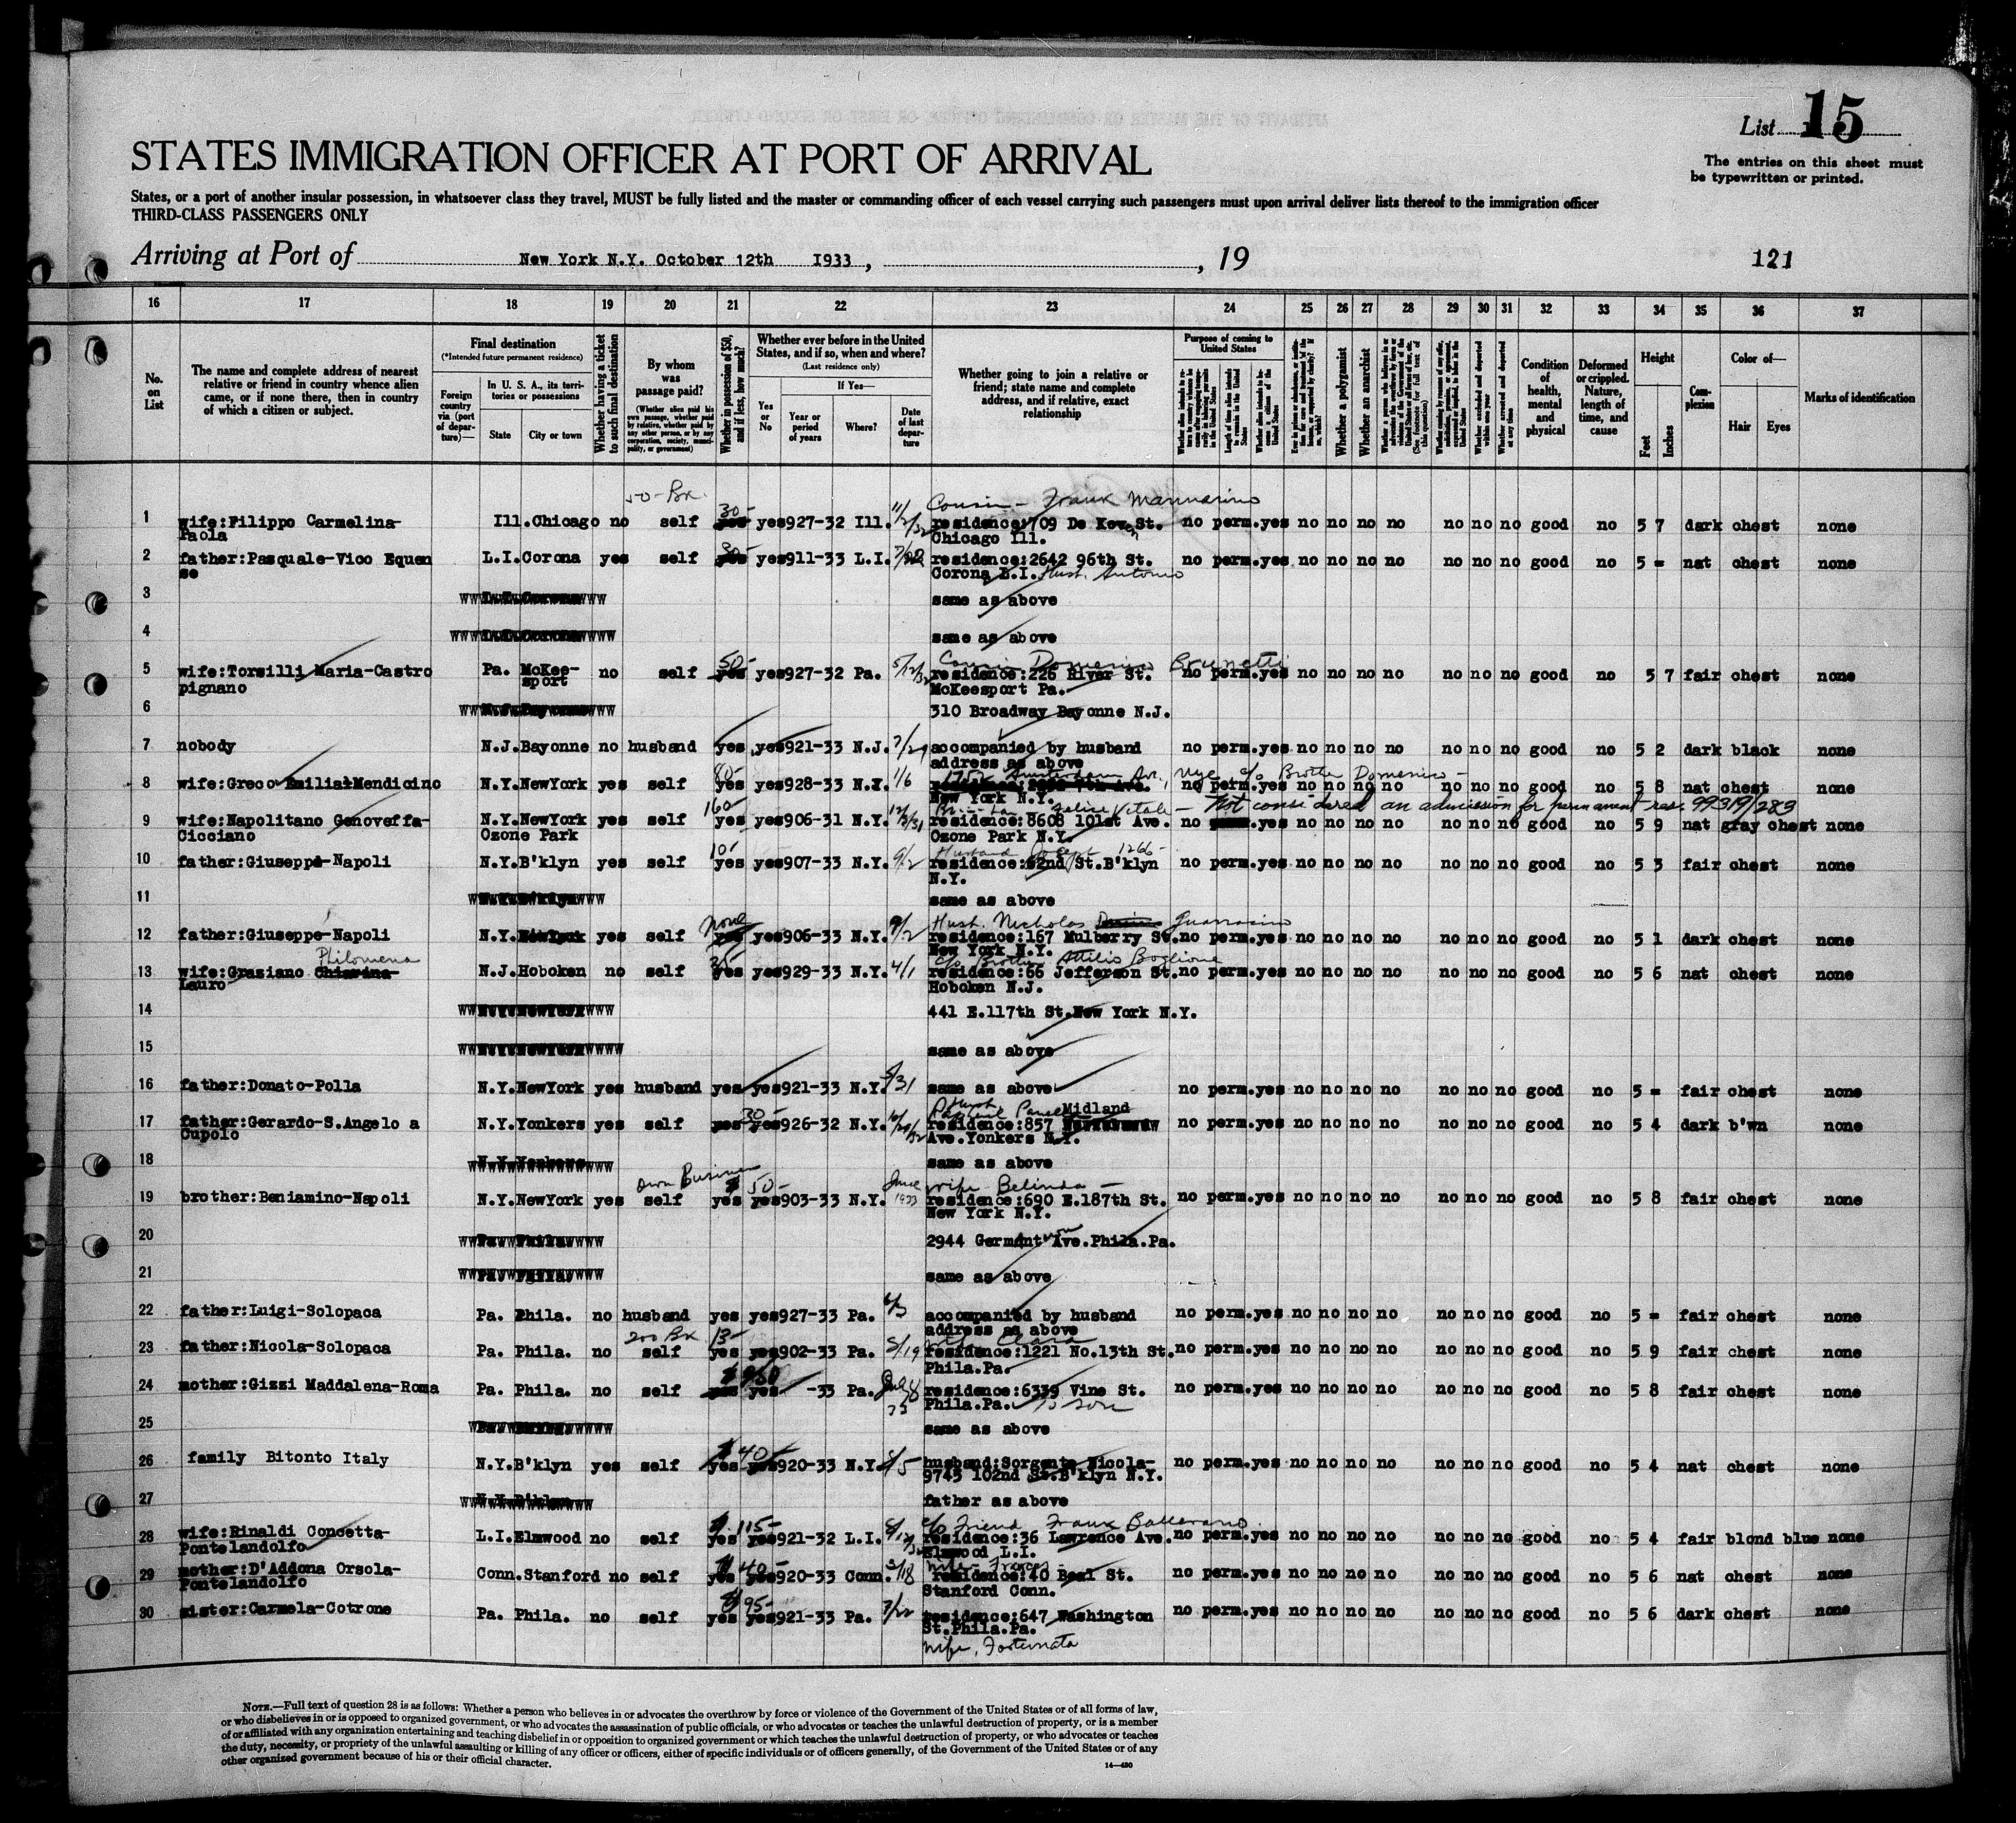 List 15
The entries on this sheet must
be typewritten or printed.
STATES IMMIGRATION OFFICER AT PORT OF ARRIVAL
States, or a port of another insular possession, in whatsoever class they travel, MUST be fully listed and the master or commanding officer of each vessel carrying such passengers must upon arrival deliver lists thereof to the immigration officer
THIRD-CLASS PASSENGERS ONLY
Arriving at Port of New York N.Y. October 12th 1933, , 19
121
16 17 18 19 20 21 22 23 24 25 26 27 28 29 30 31 32 33 34 35 36 37
No. on List
The name and complete address of nearest
relative or friend in country whence alien
came, or if none there, then in country
of which a citizen or subject.
Final destination
(*Intended future permanent residence)
Foreign country via (port of departure)—
In U. S. A., its territories or possessions
State
City or town
Whether having a ticket to such final destination
By whom was passage paid?
(Whether alien paid his own passage, whether paid by relative, whether paid by any other person, or by any corporation, society, municipality, or government)
Whether in possession of $50, and if less, how much?
Whether ever before in the United
States, and if so, when and where?
(Last residence only)
Yes or No
If Yes—
Year or period of years
Where?
Date of last departure
Whether going to join a relative or
friend; state name and complete
address, and if relative, exact
relationship
Purpose of coming to
United States
Whether a polygamist
Whether an anarchist
Condition of health, mental and physical
Deformed or crippled. Nature, length of time, and cause
Height
Feet
Inches
Complexion
Color of—
Hair Eyes
Marks of identification
50-Bx. 30- 11/2/32 Cousin - Frank Mannarino
1 wife:Filippo Carmelina- Ill.Chicago no self yes yes927-32 Ill. residence:709 De Koven St. no perm.yes no no no no no no no good no 5 7 dark chest none
Paola Chicago Ill.
2 father:Pasquale-Vico Equen L.I.Corona yes self yes yes911-33 L.I. residence:2642 96th St. no perm.yes no no no no no no no good no 5 = nat chest none
se Corona L.I. Hust. Antonio
3 same as above
4 same as above
50- Cousin Domenico Brunetti
5 wife:Torsilli Maria-Castro Pa. McKee- no self yes yes927-32 Pa. 5/12/32 residence:226 River St. no perm.yes no no no no no no no good no 5 7 fair chest none
pignano sport McKeesport Pa.
6 310 Broadway Bayonne N.J.
7 nobody N.J.Bayonne no husband yes yes921-33 N.J. 7/29 accompanied by husband no perm.yes no no no no no no no good no 5 2 dark black none
address as above
80- Amsterdam Ave., Nyc c/o Brother Domenico-
8 wife:Greco Emilia-Mendicino N.Y.NewYork yes self yes yes928-33 N.Y. 1/6 no perm.yes no no no no no no no good no 5 8 nat chest none
New York N.Y.
160- Vitale - Not considered an admission for permanent res. 99319/283
9 wife:Napolitano Genoveffa- N.Y.NewYork yes self yes yes906-31 N.Y. residence:8608 101st Ave. no yes no no no no no no no good no 5 9 nat gray chest none
Cicciano Ozone Park Ozone Park N.Y.
10- Husband Joseph 1266-
10 father:Giuseppe-Napoli N.Y.B'klyn yes self yes yes907-33 N.Y. 9/2 residence:62nd St.B'klyn no perm.yes no no no no no no no good no 5 3 fair chest none
N.Y.
11 same as above
none Hust. Nicholas Guarracino
12 father:Giuseppe-Napoli N.Y. yes self yes yes906-33 N.Y. 9/2 residence:167 Mulberry St. no perm.yes no no no no no no no good no 5 1 dark chest none
New York N.Y.
Philomena 25- c/o Brother Attilio Boglione
13 wife:Graziano Chiarina- N.J.Hoboken no self yes yes929-33 N.Y. 4/1 residence:66 Jefferson St. no perm.yes no no no no no no no good no 5 6 nat chest none
Lauro Hoboken N.J.
14 441 E.117th St.New York N.Y.
15 same as above
16 father:Donato-Polla N.Y.NewYork yes husband yes yes921-33 N.Y. 5/31 same as above no perm.yes no no no no no no no good no 5 = fair chest none
30- Hust Midland
17 father:Gerardo-S.Angelo a N.Y.Yonkers yes self yes yes926-32 N.Y. residence:857 no perm.yes no no no no no no no good no 5 4 dark b'wn none
Cupolo Ave.Yonkers N.Y.
18 same as above
Own Business $50- June 1933 wife Belinda -
19 brother:Beniamino-Napoli N.Y.NewYork yes self yes yes903-33 N.Y. residence:690 E.187th St. no perm.yes no no no no no no no good no 5 8 fair chest none
New York N.Y.
20 2944 Germant'wn Ave.Phila.Pa.
21 same as above
22 father:Luigi-Solopaca Pa. Phila. no husband yes yes927-33 Pa. 6/3 accompanied by husband no perm.yes no no no no no no no good no 5 = fair chest none
address as above
200 Bx 13- wife Clara
23 father:Nicola-Solopaca Pa. Phila. no self yes yes902-33 Pa. 5/19 residence:1221 No.13th St. no perm.yes no no no no no no no good no 5 9 fair chest none
Phila.Pa.
24 mother:Gizzi Maddalena-Roma Pa. Phila. no self yes yes -33 Pa. residence:6339 Vine St. no perm.yes no no no no no no no good no 5 8 fair chest none
Phila.Pa. to son
25 same as above
$40-
26 family Bitonto Italy N.Y.B'klyn yes self yes yes920-33 N.Y. husband:Sorgente Nicola- no perm.yes no no no no no no no good no 5 4 nat chest none
9745 102nd St.B'klyn N.Y.
27 father as above
$115- c/o Friend Frank Ballarano
28 wife:Rinaldi Concetta- L.I.Elmwood no self yes yes921-32 L.I. residence:36 Lawrence Ave. no perm.yes no no no no no no no good no 5 4 fair blond blue none
Pontelandolfo Elmwood L.I.
$40- wife- Frances-
29 mother:D'Addona Orsola- Conn.Stanford no self yes yes920-33 Conn. 3/18 residence:40 Beal St. no perm.yes no no no no no no no good no 5 6 nat chest none
Pontelandolfo Stanford Conn.
$95-
30 sister:Carmela-Cotrone Pa. Phila. no self yes yes921-33 Pa. 7/22 residence:647 Washington no perm.yes no no no no no no no good no 5 6 dark chest none
St.Phila.Pa.
wife, Fortunata
NOTE.—Full text of question 28 is as follows: Whether a person who believes in or advocates the overthrow by force or violence of the Government of the United States or of all forms of law,
or who disbelieves in or is opposed to organized government, or who advocates the assassination of public officials, or who advocates or teaches the unlawful destruction of property, or is a member
of or affiliated with any organization entertaining and teaching disbelief in or opposition to organized government or which teaches the unlawful destruction of property, or who advocates or teaches
the duty, necessity, or propriety of the unlawful assaulting or killing of any officer or officers, either of specific individuals or of officers generally, of the Government of the United States or of any
other organized government because of his or their official character.
14—430